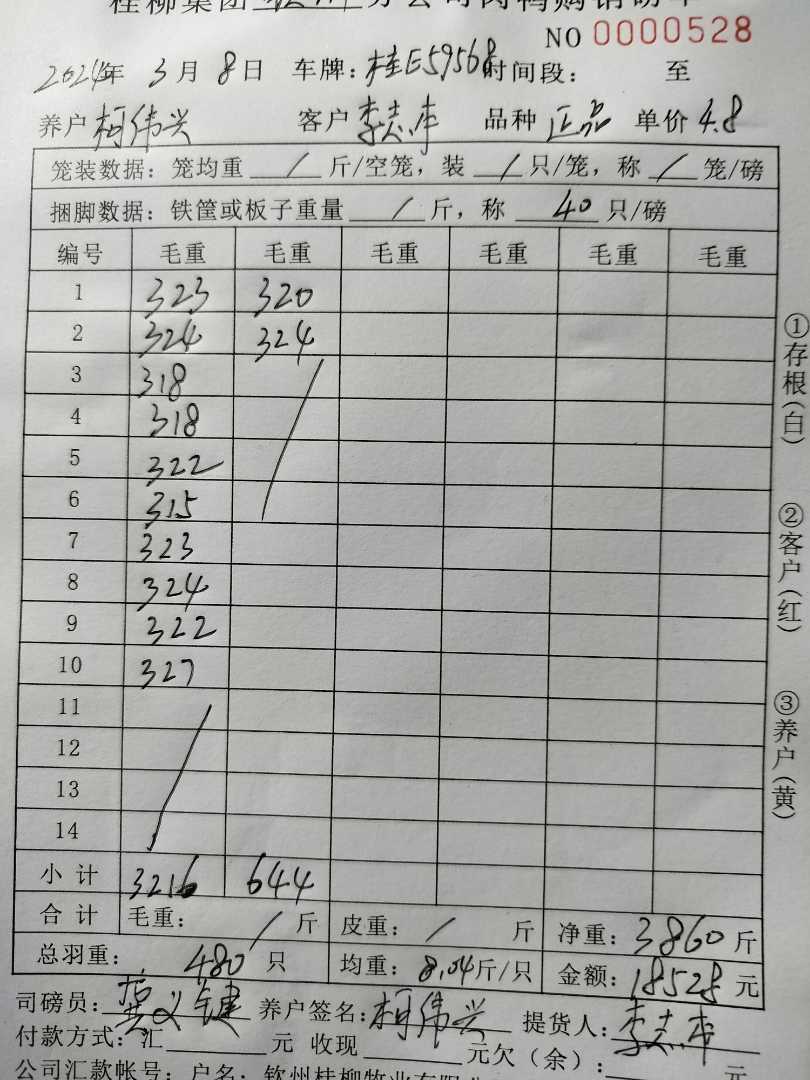 桂柳集团 分公司肉鸭购销磅单
NO 0000528
2024年 3月 8日 车牌：桂E59568 时间段： 至
养户 柯伟兴 客户 李志库 品种 正品 单价 4.8
笼装数据：笼均重 / 斤/空笼，装 / 只/笼，称 / 笼/磅
捆脚数据：铁筐或板子重量 / 斤，称 40 只/磅
编号 毛重 毛重 毛重 毛重 毛重 毛重
1 323 320
2 324 324
3 318
4 318
5 322
6 315
7 323
8 324
9 322
10 327
11
12
13
14
小计 3216 644
合计 毛重： / 斤 皮重： / 斤 净重：3860斤
总羽重： 480 只 均重：8.04斤/只 金额：18528元
司磅员： 养户签名：柯伟兴 提货人：李志库
付款方式：汇 元 收现 元欠（余）： 元
公司汇款帐号：户名：钦州桂柳牧业有限
①存根(白)
②客户(红)
③养户(黄)